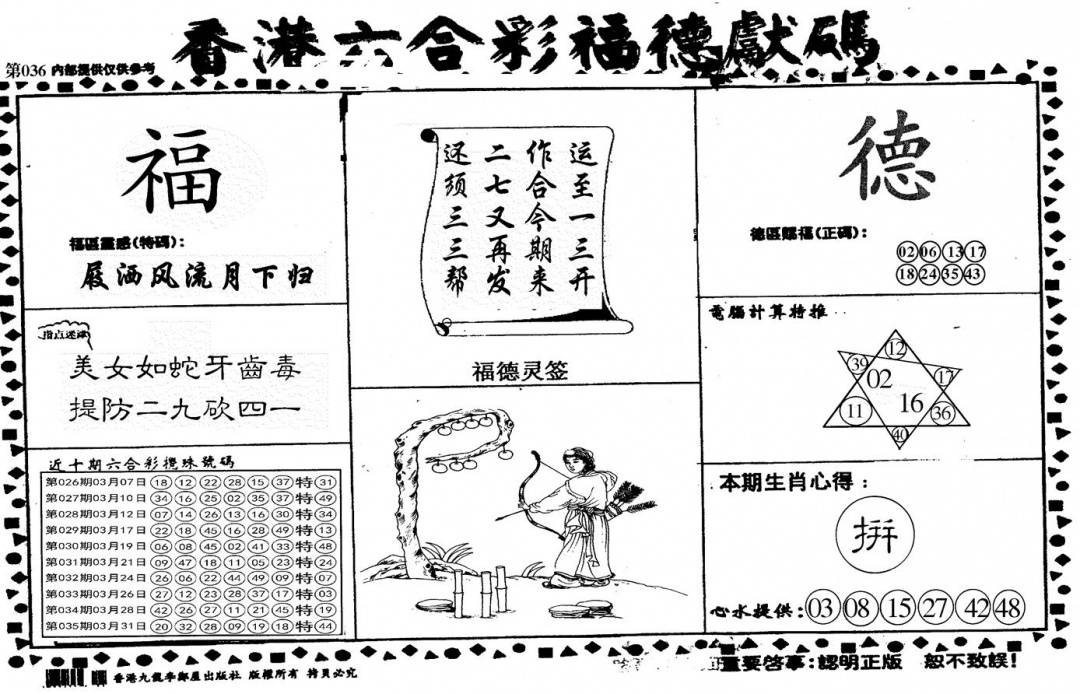 香港六合彩福德獻碼
第036 内部提供仅供参考
福
福區靈感(特碼):
屐洒风流月下归
指点迷津
美女如蛇牙齒毒
提防二九砍四一
近十期六合彩攪珠號碼
第026期03月07日 18 12 22 28 15 37 特 31
第027期03月10日 34 16 25 02 35 37 特 49
第028期03月12日 07 14 26 13 16 30 特 34
第029期03月17日 22 18 45 16 28 49 特 13
第030期03月19日 06 08 45 02 41 33 特 48
第031期03月21日 09 47 18 11 05 23 特 24
第032期03月24日 26 06 22 44 49 09 特 07
第033期03月26日 27 12 23 28 37 17 特 03
第034期03月28日 42 26 27 11 21 45 特 19
第035期03月31日 20 32 28 09 19 18 特 44
运至一三开
作合今期来
二七又再发
还须三三帮
福德灵签
德
德區賜福(正碼):
02 06 13 17
18 24 35 43
電腦計算特推
12
39 02 17
11 16 36
40
本期生肖心得:
拼
心水提供:03 08 15 27 42 48
香港九龍李鄭屋出版社 版權所有 拷貝必究
重要啓事:認明正版 恕不致誤!